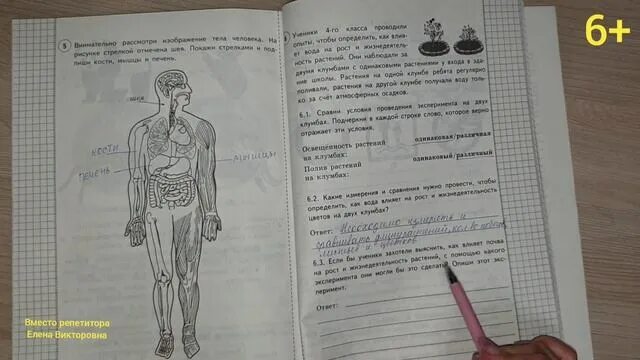 6+
5 Внимательно рассмотри изображение тела человека. На
рисунке стрелкой отмечена шея. Покажи стрелками и под-
пиши кости, мышцы и печень.
шея
кости
мышцы
печень
Вместо репетитора
Елена Викторовна
Ученики 4-го класса проводили
опыты, чтобы определить, как вли-
яет вода на рост и жизнедеятель-
ность растений. Они наблюдали за
двумя клумбами с одинаковыми растениями у входа в зда-
ние школы. Растения на одной клумбе ребята регулярно
поливали, растения на другой клумбе получали воду толь-
ко за счёт атмосферных осадков.
6.1. Сравни условия проведения эксперимента на двух
клумбах. Подчеркни в каждой строке слово, которое верно
отражает эти условия.
Освещённость растений
на клумбах: одинаковая/различная
Полив растений
на клумбах: одинаковый/различный
6.2. Какие измерения и сравнения нужно провести, чтобы
определить, как вода влияет на рост и жизнедеятельность
цветов на двух клумбах?
Ответ: Необходимо измерить и
листьев и цветков
6.3. Если бы ученики захотели выяснить, как влияет почва
на рост и жизнедеятельность растений, с помощью какого
эксперимента они могли бы это сделать? Опиши этот экс-
перимент.
Ответ: